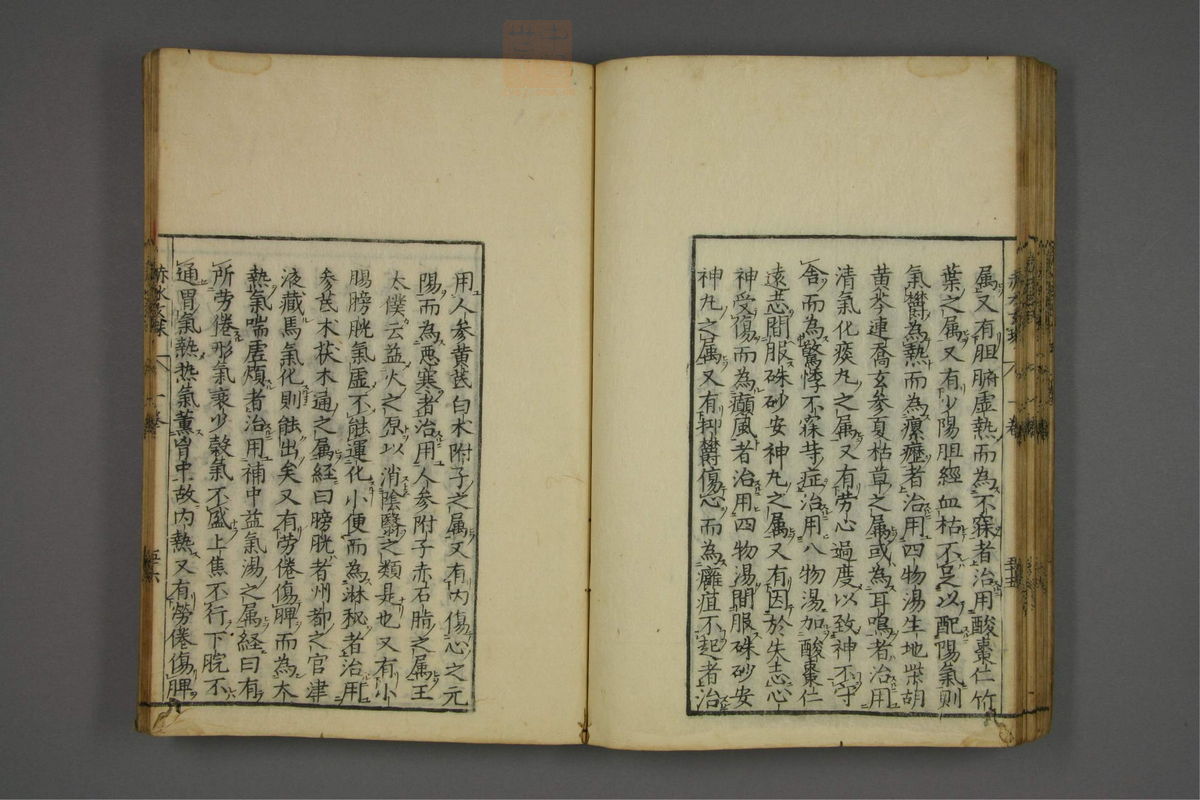 属又有胆腑虚熱而為不寐者治用酸棗仁竹
葉之属又有少陽胆經血枯不足以配陽氣則
氣欝為熱而為瘰癧者治用四物湯生地柴胡
黄芩連喬玄參夏枯草之属或為耳鳴者治用
清氣化痰丸之属又有劳心過度以致神不守
舎而為驚悸不寐等症治用八物湯加酸棗仁
遠志間服硃砂安神丸之属又有因於失志心
神受傷而為癲風者治用四物湯間服硃砂安
神丸之属又有抑欝傷心而為癰疽不起者治
用人參黄芪白木附子之属又有内傷心之元
陽而為悪寒者治用人參附子赤石脂之属王
太僕云益火之原以消陰翳之類是也又有小
腸膀胱氣虚不能運化小便而為淋秘者治用
參芪木茯木通之属経曰膀胱者州都之官津
液藏焉氣化則能出矣又有劳倦傷脾而為大
熱氣喘虚煩者治用補中益氣湯之属経曰有
所劳倦形氣衰少穀氣不盛上焦不行下脘不
通胃氣熱热氣薫胷中故内熱又有勞倦傷脾